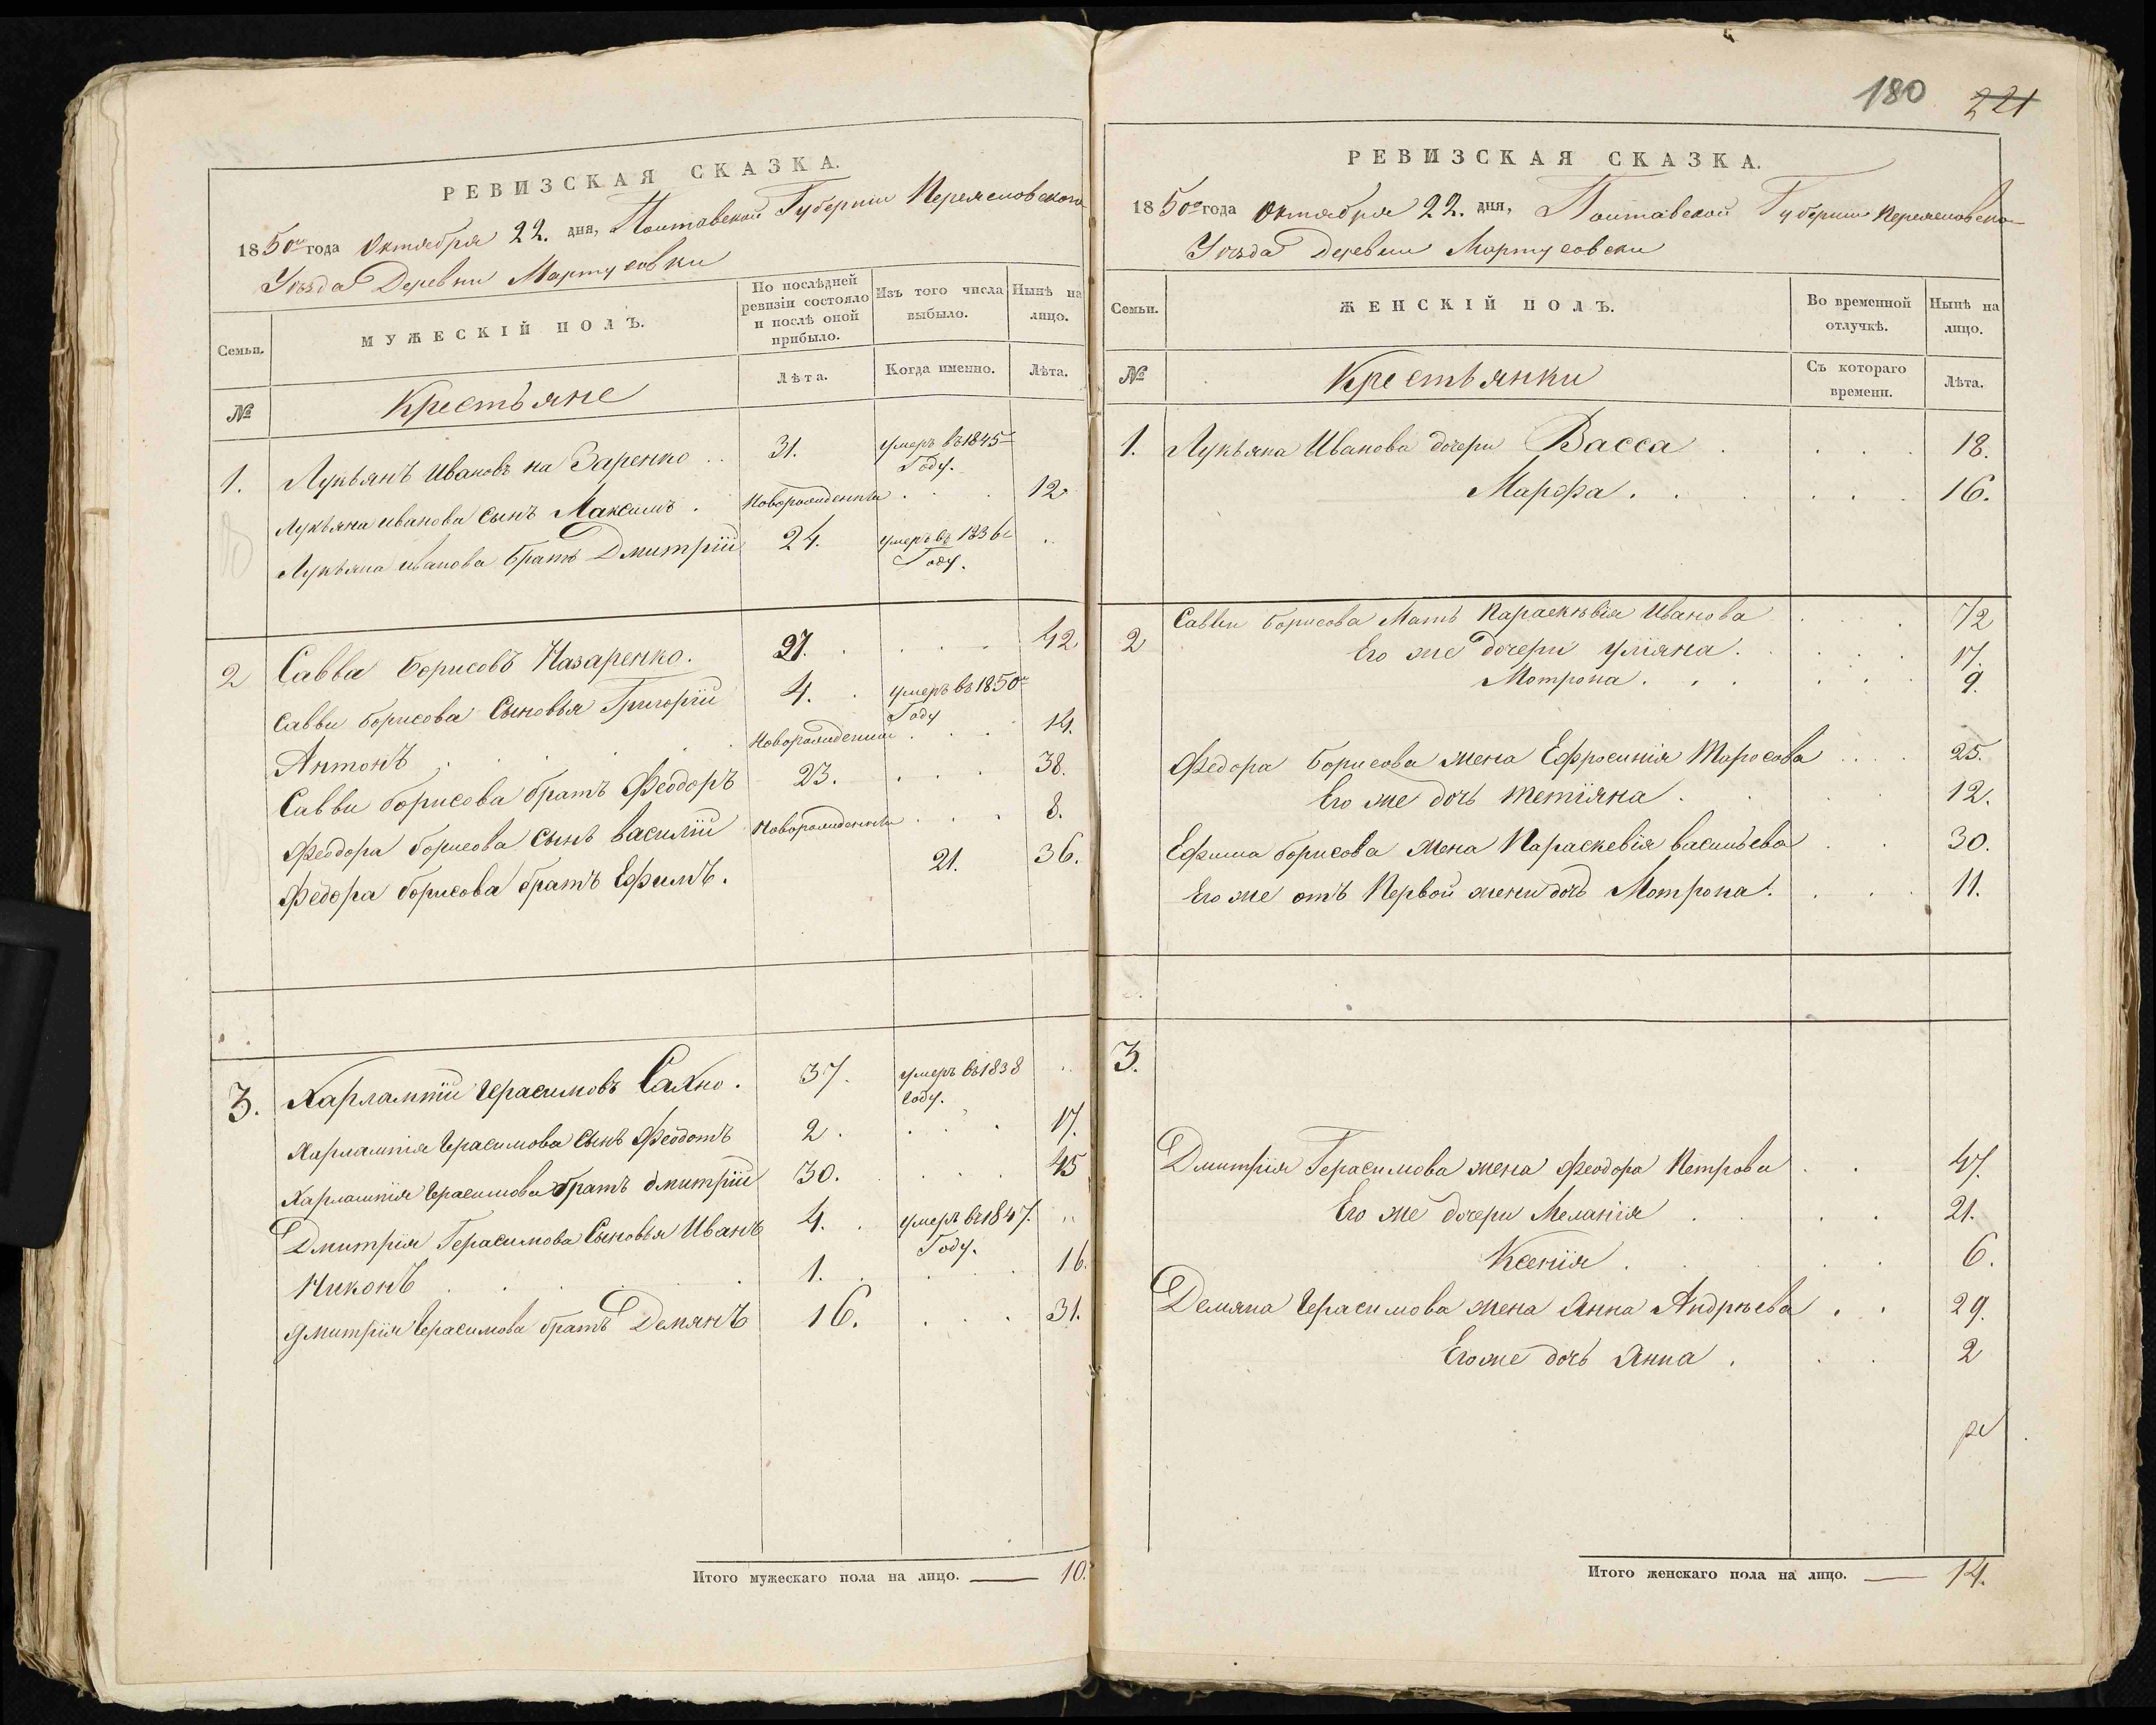 РЕВИЗСКАЯ СКАЗКА.
1850го года Октября 22. дня, Полтавской Губернии Переясловского
Уезда Деревни Мартусовки
Семьи.
МУЖЕСКІЙ ПОЛЪ.
По послѣдней ревизіи состояло и послѣ оной прибыло.
Изъ того числа выбыло.
Нынѣ на лицо.
№
Крестьяне
Лѣта.
Когда именно.
Лѣта.
1. Лукьянъ Ивановъ на Заренко .. 31. умеръ въ 1845м Году.
Лукьяна иванова сынъ Максимъ . Новорожденный . . . 12
Лукьяна иванова братъ Дмитрій 24. умеръ въ 1836м Году. ..
2 Савва Борисовъ Назаренко. 27. . . . . 42
Савви борисова Сыновья Григорій 4. . умеръ въ 1850м Году
Антонъ . . . . Новорожденный . . . 14.
Савви борисова братъ Феодоръ 23. . . . 38.
Феодора борисова сынъ василій Новорожденный . . . 8.
Федора борисова братъ Ефимъ. 21. 36.
3. Харлампій Герасимовъ Сахно. 37. умеръ въ 1838 году. ..
Харлампія Герасимова сынъ Феодотъ 2. . . . 17.
Харлампія Герасимова братъ дмитрій 30. . . . 45
Дмитрія Герасимова Сыновья Иванъ 4. . умеръ въ 1847. Году. ..
Никонъ . . . . 1. . . . . 16.
Дмитрія Герасимова братъ Демянъ 16. . . . 31.
Итого мужескаго пола на лицо. — 10.
180 221
РЕВИЗСКАЯ СКАЗКА.
1850го года Октября 22. дня, Полтавской Губернии Переяслов
Уезда Деревни Мортусовски
Семьи.
ЖЕНСКІЙ ПОЛЪ.
Во временной отлучкѣ.
Нынѣ на лицо.
№
Крестьянки
Съ котораго времени.
Лѣта.
1. Лукьяна Иванова дочери Васса . . . . 18.
Марфа . . . . . . 16.
2 Савви борисова Мать Параскѣвія Иванова . . . 72
Его же дочери уліяна. . . . . 17.
Мотрона. . . . . . 9.
Федора Борисова жена Ефросинія Таросова .... 25.
Его же дочь тетіяна . . . . 12.
Ефима борисова жена Параскевія васильева . . 30.
Его же отъ Первой жени дочь Мотрона. . . . 11.
3.
Дмитрія Герасимова жена феодора Петрова . . 47.
Его же дочери Меланія . . . . 21.
Ксенія . . . . 6.
Демяна Герасимова жена Анна Андрѣева . . 29.
Его же дочь Анна . . . 2
Итого женскаго пола на лицо. — 14.